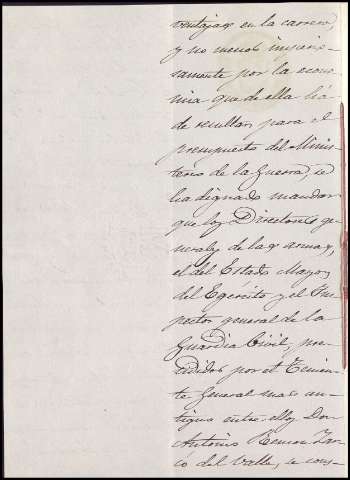 ventajas en la carrera,
y no menos imperio-
samente por la econo-
mia que de ella há
de resultar para el
presupuesto del Minis-
terio de la Guerra, se
ha dignado mandar
que los Directores ge-
nerales de las armas,
el del Estado Mayor
del Egército y el Ins-
pector general de la
Guardia Civil, pre-
sididos por el Tenien-
te General mas an-
tiguo entre ellos Don
Antonio Remon Zar-
co del Valle, se cons-